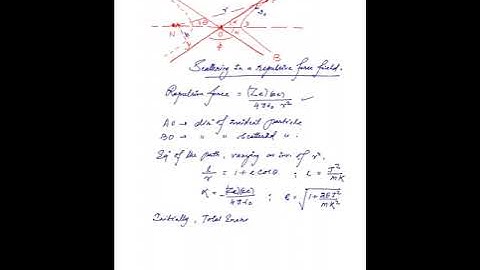 r
N
θ
α
α
O
φ
B
Scattering in a repulsive force field.
Repulsive force = (Ze)(ze) / 4πε₀ r² ✓
AO → dirⁿ of incident particle
BO → " " scattered ".
Eqⁿ of the path, varying as inv. of r².
l/r = 1 + ε cosθ ; l = J²/mK
K = -(Ze)(ze)/4πε₀ ; ε = √(1 + 2EJ²/mK²)
Initially, Total Ener